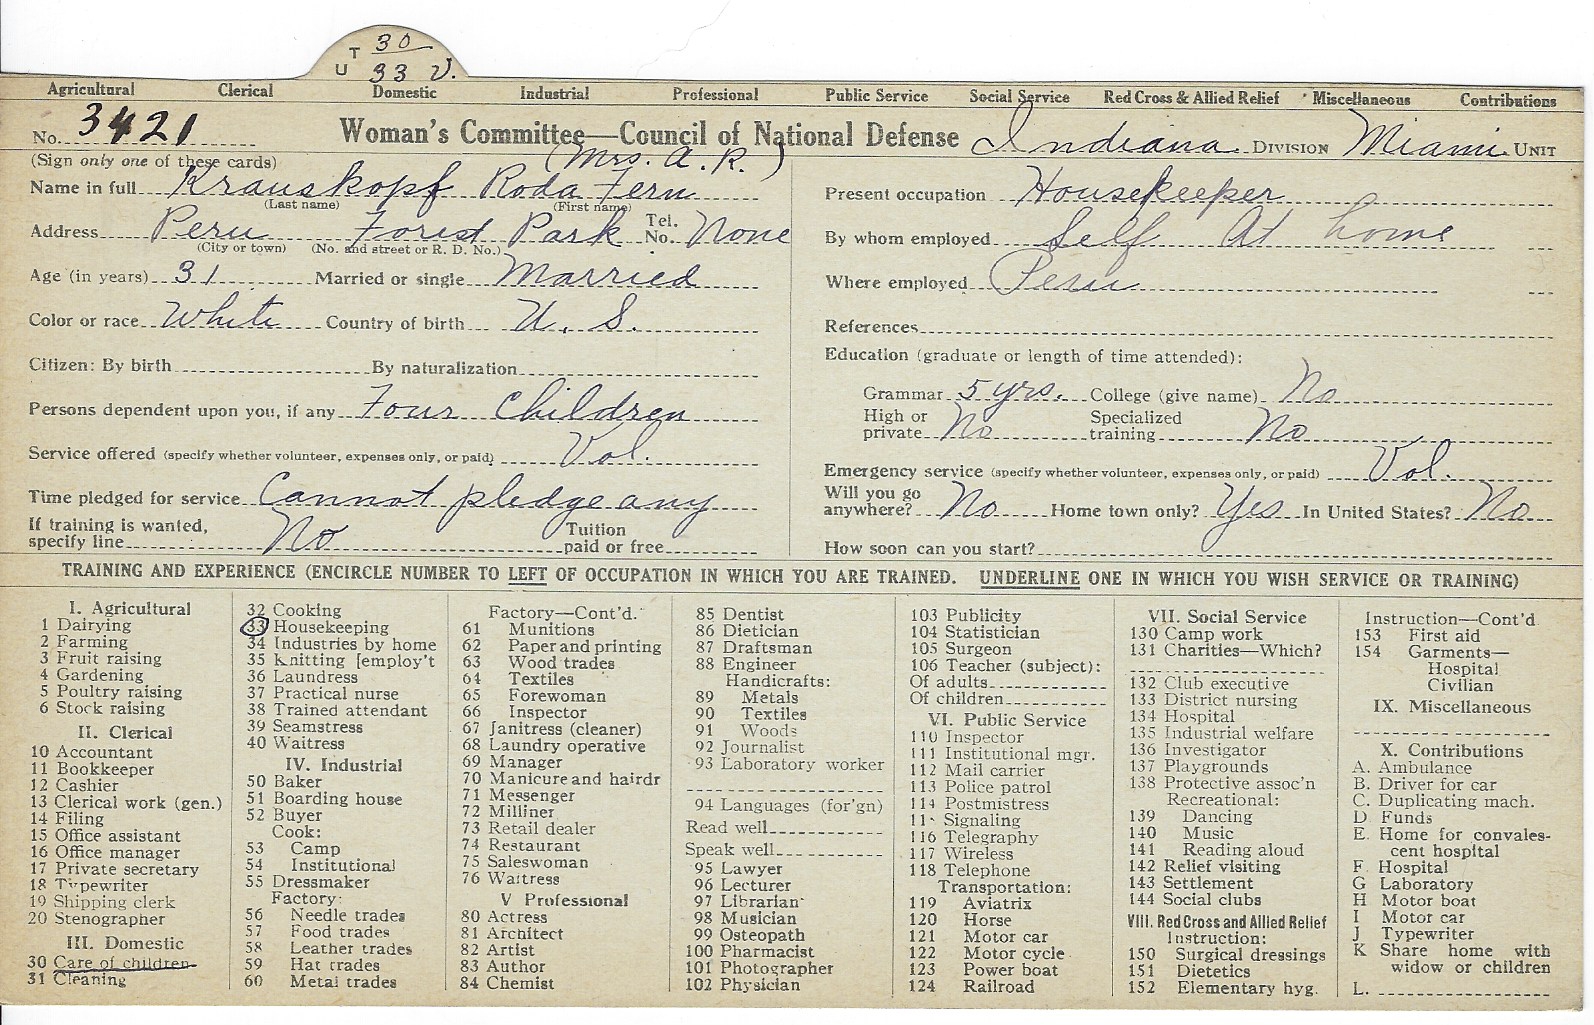 T 30
U 33 V.
Agricultural Clerical Domestic Industrial Professional Public Service Social Service Red Cross & Allied Relief Miscellaneous Contributions
No. 3421 Woman's Committee—Council of National Defense Indiana DIVISION Miami UNIT
(Sign only one of these cards) (Mrs. A. R.)
Name in full Krauskopf Roda Fern
(Last name) (First name)
Address Peru Forest Park Tel. No. None
(City or town) (No. and street or R. D. No.)
Age (in years) 31 Married or single Married
Color or race White Country of birth U. S.
Citizen: By birth By naturalization
Persons dependent upon you, if any Four Children
Service offered (specify whether volunteer, expenses only, or paid) Vol.
Time pledged for service Cannot pledge any
If training is wanted, specify line No Tuition paid or free
Present occupation Housekeeper
By whom employed Self At home
Where employed Peru
References
Education (graduate or length of time attended):
Grammar 5 yrs. College (give name) No
High or private No Specialized training No
Emergency service (specify whether volunteer, expenses only, or paid) Vol.
Will you go anywhere? No Home town only? Yes In United States? No
How soon can you start?
TRAINING AND EXPERIENCE (ENCIRCLE NUMBER TO LEFT OF OCCUPATION IN WHICH YOU ARE TRAINED. UNDERLINE ONE IN WHICH YOU WISH SERVICE OR TRAINING)
I. Agricultural
1 Dairying
2 Farming
3 Fruit raising
4 Gardening
5 Poultry raising
6 Stock raising
II. Clerical
10 Accountant
11 Bookkeeper
12 Cashier
13 Clerical work (gen.)
14 Filing
15 Office assistant
16 Office manager
17 Private secretary
18 Typewriter
19 Shipping clerk
20 Stenographer
III. Domestic
30 Care of children
31 Cleaning
32 Cooking
33 Housekeeping
34 Industries by home
35 Knitting [employ't
36 Laundress
37 Practical nurse
38 Trained attendant
39 Seamstress
40 Waitress
IV. Industrial
50 Baker
51 Boarding house
52 Buyer
Cook:
53 Camp
54 Institutional
55 Dressmaker
Factory:
56 Needle trades
57 Food trades
58 Leather trades
59 Hat trades
60 Metal trades
Factory—Cont'd.
61 Munitions
62 Paper and printing
63 Wood trades
64 Textiles
65 Forewoman
66 Inspector
67 Janitress (cleaner)
68 Laundry operative
69 Manager
70 Manicure and hairdr
71 Messenger
72 Milliner
73 Retail dealer
74 Restaurant
75 Saleswoman
76 Waitress
V Professional
80 Actress
81 Architect
82 Artist
83 Author
84 Chemist
85 Dentist
86 Dietician
87 Draftsman
88 Engineer
Handicrafts:
89 Metals
90 Textiles
91 Woods
92 Journalist
93 Laboratory worker
94 Languages (for'gn)
Read well
Speak well
95 Lawyer
96 Lecturer
97 Librarian
98 Musician
99 Osteopath
100 Pharmacist
101 Photographer
102 Physician
103 Publicity
104 Statistician
105 Surgeon
106 Teacher (subject):
Of adults
Of children
VI. Public Service
110 Inspector
111 Institutional mgr.
112 Mail carrier
113 Police patrol
114 Postmistress
11 Signaling
116 Telegraphy
117 Wireless
118 Telephone
Transportation:
119 Aviatrix
120 Horse
121 Motor car
122 Motor cycle
123 Power boat
124 Railroad
VII. Social Service
130 Camp work
131 Charities—Which?
132 Club executive
133 District nursing
134 Hospital
135 Industrial welfare
136 Investigator
137 Playgrounds
138 Protective assoc'n
Recreational:
139 Dancing
140 Music
141 Reading aloud
142 Relief visiting
143 Settlement
144 Social clubs
VIII. Red Cross and Allied Relief
Instruction:
150 Surgical dressings
151 Dietetics
152 Elementary hyg.
Instruction—Cont'd
153 First aid
154 Garments—
Hospital
Civilian
IX. Miscellaneous
X. Contributions
A. Ambulance
B. Driver for car
C. Duplicating mach.
D Funds
E. Home for convales-
cent hospital
F. Hospital
G Laboratory
H Motor boat
I Motor car
J Typewriter
K Share home with
widow or children
L.